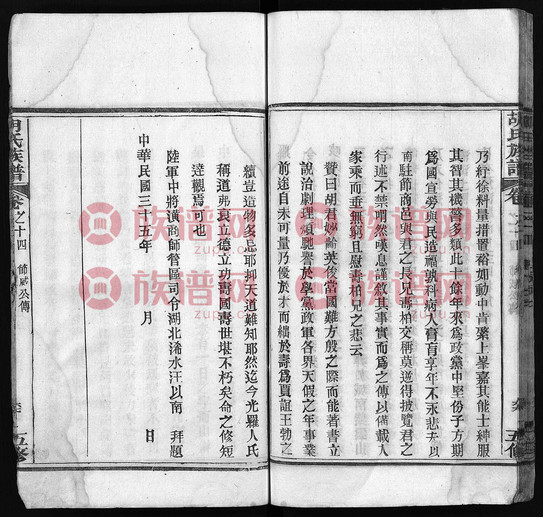 胡氏族譜 卷之十四
五修
乃紆徐料量措置裕如動中肯棨上峯嘉其能士紳服
其智其機警多類此十餘年來爲政黨中堅份子方期
爲國宣勞與民造福孰
病入膏肓享年不永悲夫以
南駐節商邑與君之長兄壽柏交稱莫逆得披覽君之
行述不禁喟然嘆息謹敘其事實而爲之傳以備載人
家乘而垂無窮且慰壽柏兄之悲云
贊曰胡君妙齡英俊當國難方殷之際而能著書立
說洽劇理煩馳譽於學黨政軍各界天假之年事業
前途自未可量乃優於才而絀於壽爲賈誼王勃之
續豈造物多忌耶抑天道難知耶然迄今光羅人氏
稱道弗衰立德立功壽國壽世堪不朽矣命之修短
達觀焉可也
陸軍中將潢商師管區司令湖北浠水汪以南 拜題
中華民國三十五年 月 日
胡氏族譜 卷之十四 節威公傳
五修
族谱网